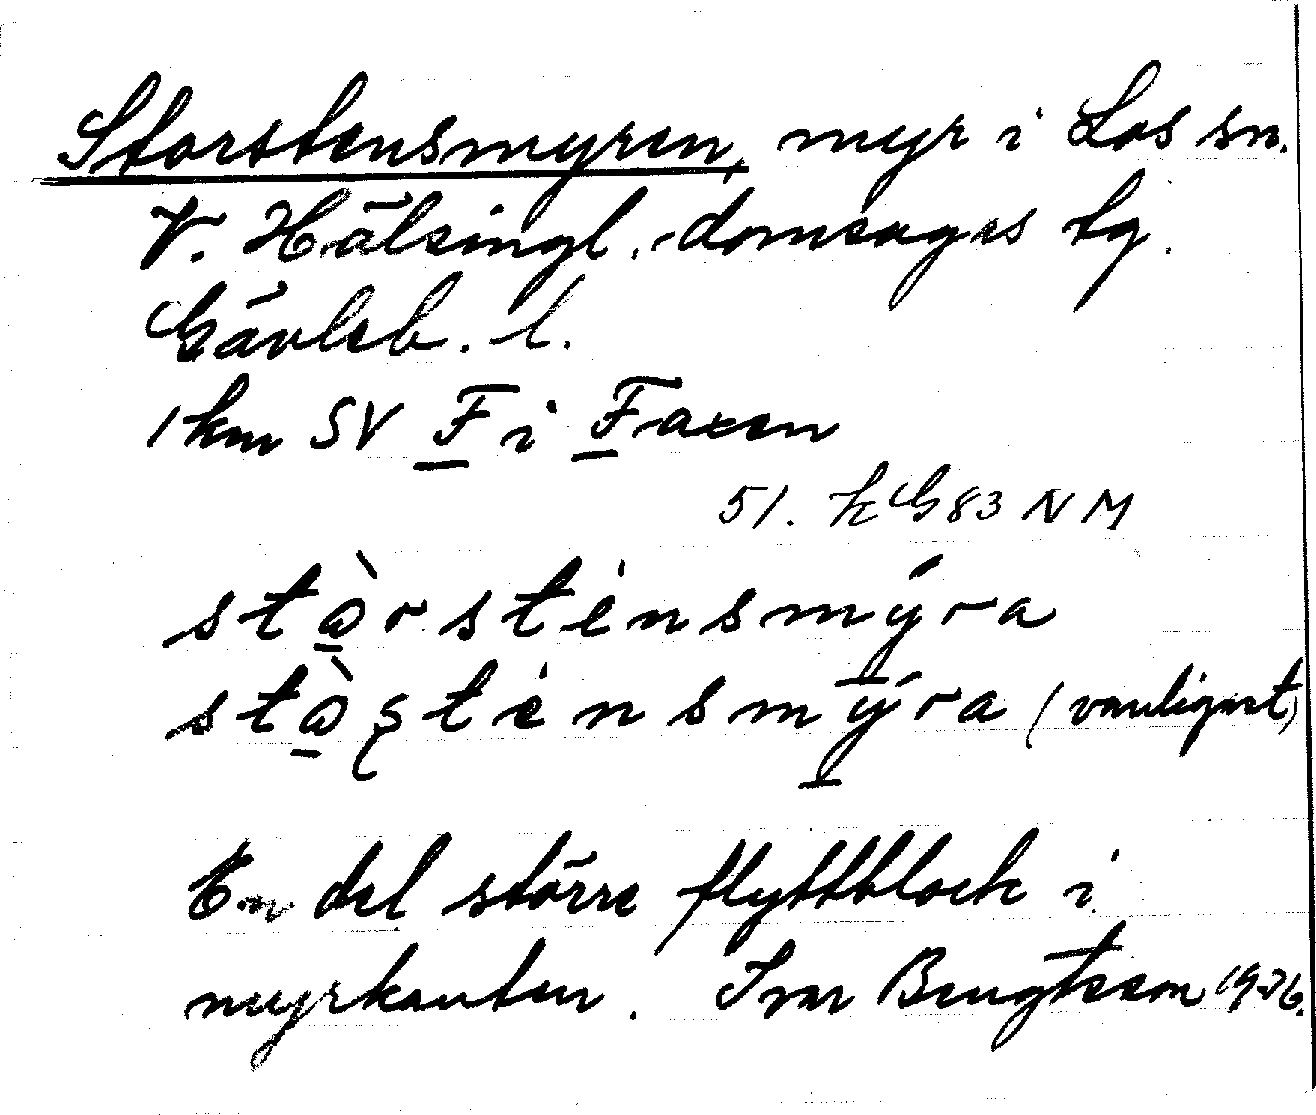 Storstensmyren, myr i Los sn.
V. Hälsingl. domsagas tg.
Gävleb. l.
1 km SV F i Faxen
51. kG83 NM
stòrsténsmýra
sténsmýra (vanligast)
En del större flyttblock i
myrkanten. Ivar Bengtsson